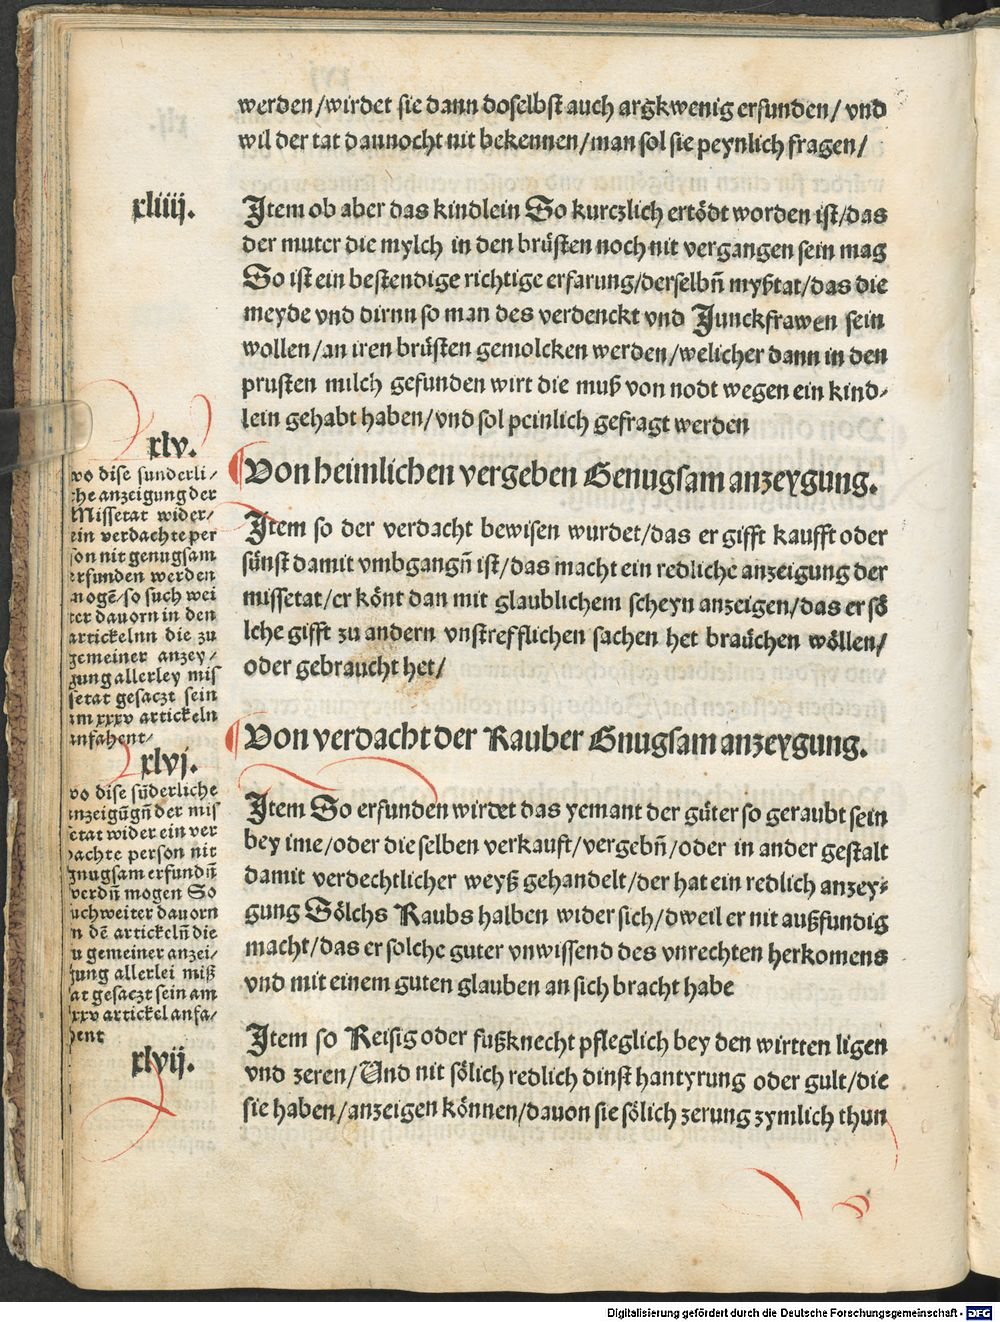 werden/wirdet sie dann doselbst auch argkwenig erfunden/ vnd
wil der tat dannocht nit bekennen/man sol sie peynlich fragen/
xliiij.
Item ob aber das kindlein So kurczlich ertödt worden ist/das
der muter die mylch in den brüsten noch nit vergangen sein mag
So ist ein bestendige richtige erfarung/derselbn̄ myßtat/das die
meyde vnd dirnn so man des verdenckt vnd Junckfrawen sein
wollen/an iren brüsten gemolcken werden/welicher dann in den
prusten milch gefunden wirt die muß von nodt wegen ein kind-
lein gehabt haben/vnd sol peinlich gefragt werden
xlv.
wo dise sunderli/
che anzeigung der
Missetat wider/
ein verdachte per
son nit genugsam
erfunden werden
mogē/so such wei
ter dauorn in den
artickelnn die zu
gemeiner anzey/
gung allerley mis
setat gesaczt sein
am xxxv artickeln
anfahent/
Von heimlichen vergeben Genugsam anzeygung.
Item so der verdacht bewisen wurdet/das er gifft kaufft oder
sünst damit vmbgangn̄ ist/das macht ein redliche anzeigung der
missetat/er könt dan mit glaublichem scheyn anzeigen/das er sö
lche gifft zu andern vnstrefflichen sachen het braüchen wöllen/
oder gebraucht het/
xlvj.
wo dise sūderliche
anzeigūgn̄ der mis
setat wider ein ver
dachte person nit
gnugsam erfundn̄
verdn̄ mogen So
suchweiter dauorn
in dē artickeln̄ die
zu gemeiner anzei/
gung allerlei miß
tat gesaczt sein am
xxxv artickel anfa/
hent
Von verdacht der Rauber Gnugsam anzeygung.
Item So erfunden wirdet das yemant der güter so geraubt sein
bey ime/oder die selben verkauft/vergebn̄/oder in ander gestalt
damit verdechtlicher weyß gehandelt/der hat ein redlich anzey-
gung Sölchs Raubs halben wider sich/dweil er nit außfundig
macht/das er solche guter vnwissend des vnrechten herkomens
vnd mit einem guten glauben an sich bracht habe
xlvij.
Item so Reisig oder fußknecht pfleglich bey den wirtten ligen
vnd zeren/Und nit sölich redlich dinst hantyrung oder gult/die
sie haben/anzeigen können/dauon sie sölich zerung zymlich thun
Digitalisierung gefördert durch die Deutsche Forschungsgemeinschaft - DFG